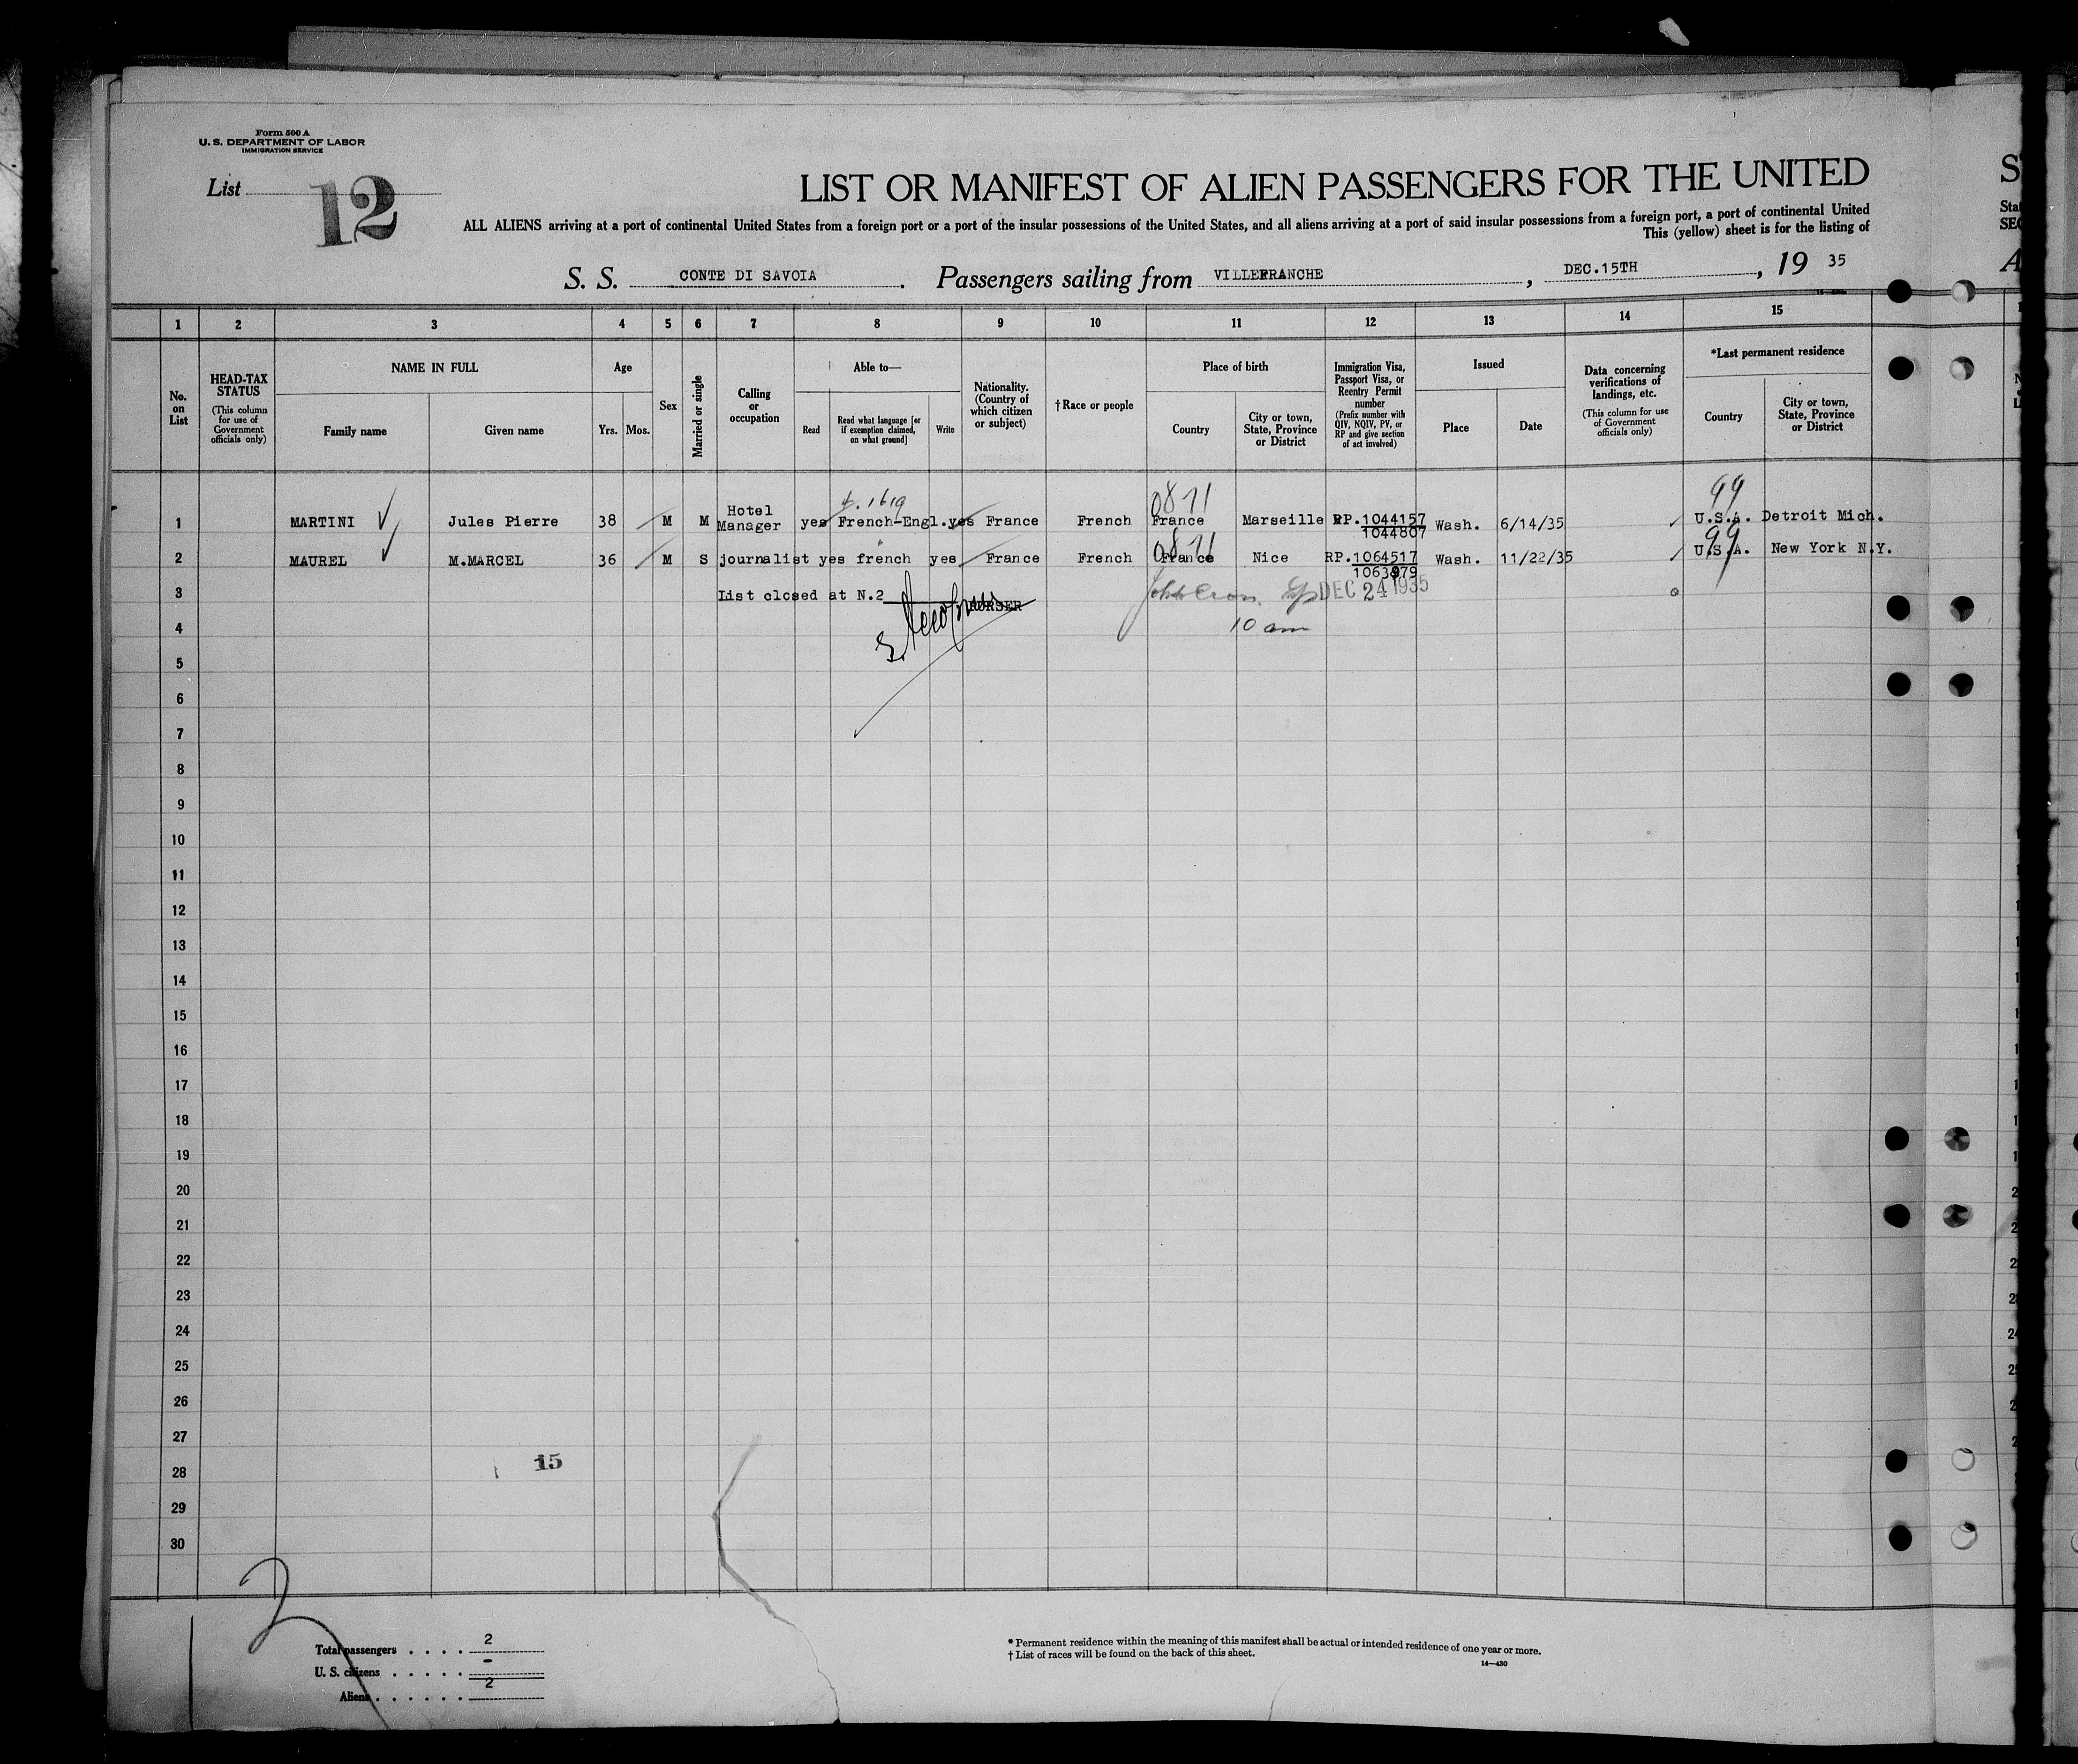 Form 500 A
U. S. DEPARTMENT OF LABOR
IMMIGRATION SERVICE
List 12
LIST OR MANIFEST OF ALIEN PASSENGERS FOR THE UNITED
ALL ALIENS arriving at a port of continental United States from a foreign port or a port of the insular possessions of the United States, and all aliens arriving at a port of said insular possessions from a foreign port, a port of continental United
This (yellow) sheet is for the listing of
S. S. CONTE DI SAVOIA. Passengers sailing from VILLEFRANCHE, DEC.15TH, 19 35
1 2 3 4 5 6 7 8 9 10 11 12 13 14 15
No. on List
HEAD-TAX STATUS
(This column for use of Government officials only)
NAME IN FULL
Family name
Given name
Age
Yrs. Mos.
Sex
Married or single
Calling or occupation
Able to—
Read
Read what language [or if exemption claimed, on what ground]
Write
Nationality. (Country of which citizen or subject)
†Race or people
Place of birth
Country
City or town, State, Province or District
Immigration Visa, Passport Visa, or Reentry Permit number
(Prefix number with QIV, NQIV, PV, or RP and give section of act involved)
Issued
Place
Date
Data concerning verifications of landings, etc.
(This column for use of Government officials only)
*Last permanent residence
Country
City or town, State, Province or District
0871 99
1 MARTINI Jules Pierre 38 M M Hotel Manager yes French-Engl. yes France French France Marseille RP.1044157 Wash. 6/14/35 U.S.A. Detroit Mich.
1044807
0871 99
2 MAUREL M.MARCEL 36 M S journalist yes french yes France French France Nice RP.1064517 Wash. 11/22/35 U.S.A. New York N.Y.
1063979
3 List closed at N.2 DEC 24 1935
4 10 am
5
6
7
8
9
10
11
12
13
14
15
16
17
18
19
20
21
22
23
24
25
26
27
15
28
29
30
2
Total passengers . . . . 2
U. S. citizens . . . . . -
Aliens . . . . . . 2
* Permanent residence within the meaning of this manifest shall be actual or intended residence of one year or more.
† List of races will be found on the back of this sheet.
14—430